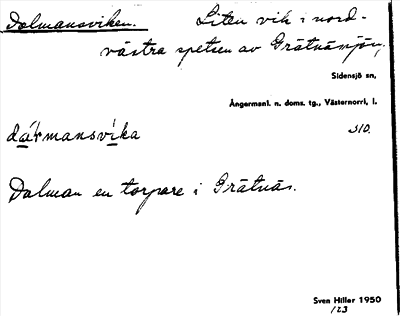 Dalmansviken. Liten vik i nord-
västra spetsen av Grätnässjön,
Sidensjö sn,
Ångermanl. n. doms. tg., Västernorrl. l.
310.
dármansvika
Dalman en torpare i Grätnäs.
Sven Hiller 1950
123